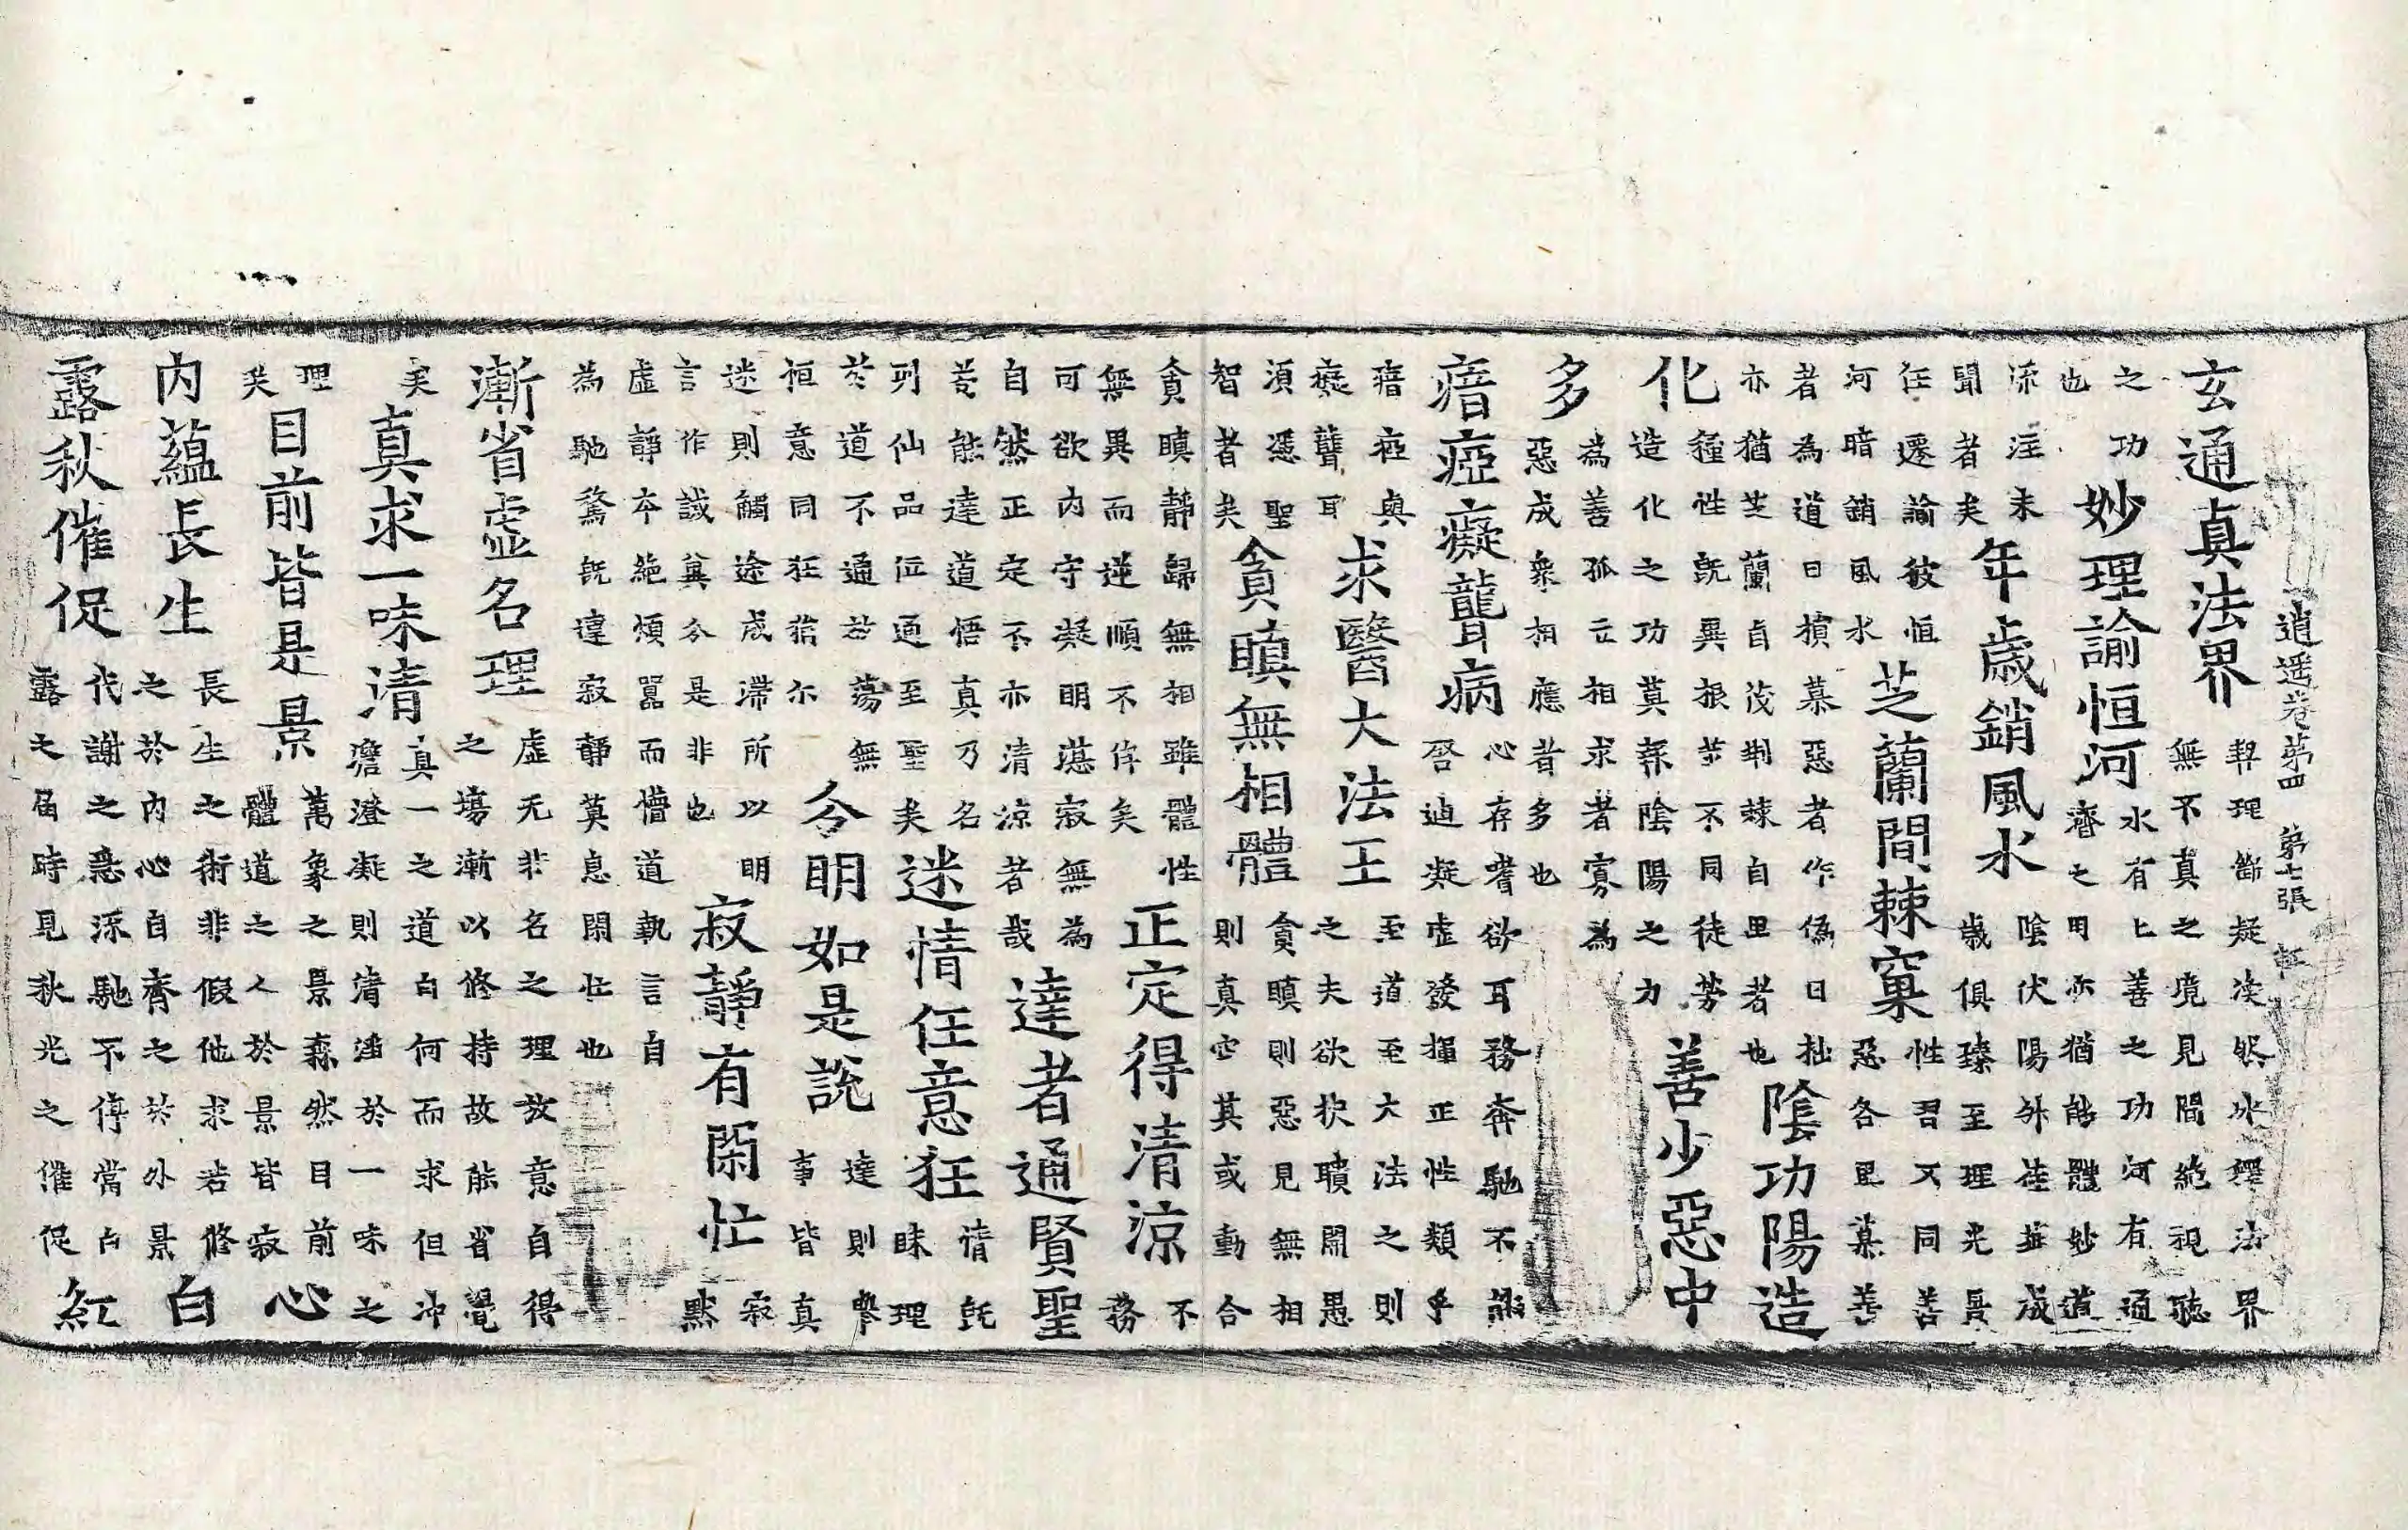 逍遥卷第四 第七張
玄通真法界 契理斷疑渙然氷釋法界無不真之境見聞絶視聽
之功也 妙理諭恒河 水有上善之功河有通濟之用亦猶能體妙道
注未聞者矣 年歲銷風水 陰伏陽外成歲俱臻至理
任遷諭彼恒河暗銷風水 芝蘭間棘窠 性習不同善惡各異慕善
者為道日損慕惡者作偽日拙亦猶芝蘭自茂荆棘自異者也 陰功陽造
化 種性既異根苗不同徒勞造化之功莫報陰陽之力 善少惡中
多 為善孤立相求者寡為惡成衆相應者多也
瘖瘂癡聾病 心存嗜欲耳務奔馳不能啓迪凝虛發揮正性類乎
瘖瘂與癡聾耳 求醫大法王 至道至大法之則之夫欲抉聵開愚
須憑聖智者矣 貪瞋無相體 貪瞋則惡見無相則真空其或動合
貪瞋靜歸無相雖體性無異而逆順不侔矣 正定得清涼 不務
可欲内守凝明湛寂無為自然正定不亦清涼者哉 達者通賢聖
若能達道悟真乃名列仙品位通至聖矣 迷情任意狂 情既昧理
於道不通故蕩無恒意同狂猖尔 今明如是說 達則舉事皆真
迷則觸途成滯所以明言作誡冀今是非也 寂靜有閑忙 寂默
虛靜本絶煩囂而懵道執言自為馳騖既違寂靜莫息閑忙也
漸省虛名理 虛无非名之理放意自得之塲漸以修持故能省覺
矣 真求一味清 真一之道白何而求但沖澹澄凝則清淨於一味之
理矣 目前皆是景 萬象之景森然目前體道之人於景皆寂 心
内蘊長生 長生之術非假他求若修之於内心自齊之於外景 白
露秋催促 代謝之馳不停當白露之届時見秋光之催促 紅